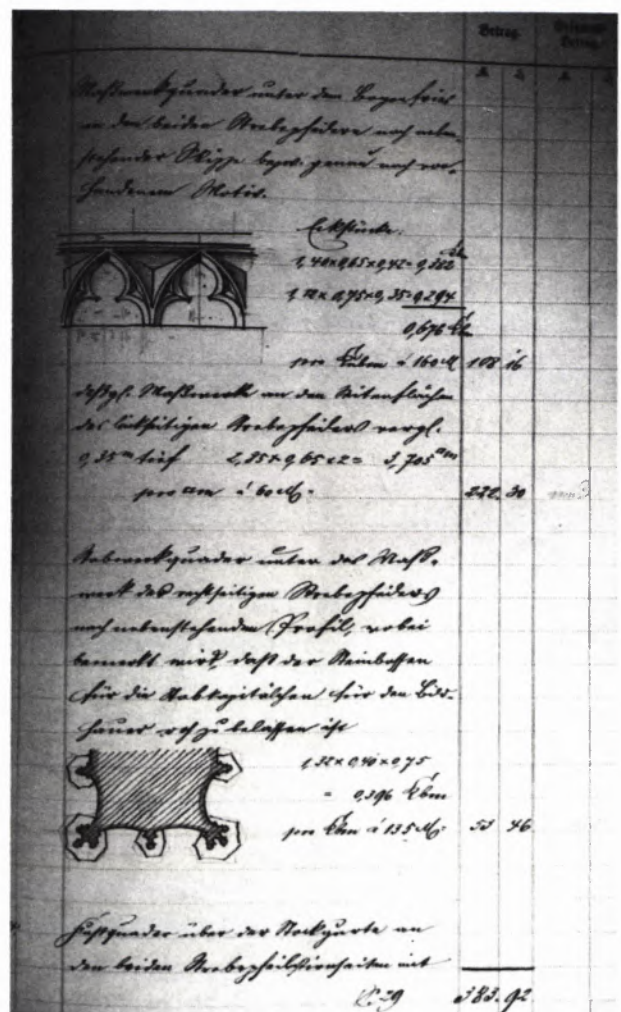 Betrag. Gesammt-Betrag.
Maßwerkquader unter dem Bogenfries
an den beiden Strebepfeilern nach neben-
stehender Skizze bezw. genau nach vor-
handenem Motiv.
Eckstücke:
1,40×0,65×0,42= 0,382
1,12×0,75×0,35= 0,294
0,676 kbm
pro kbm á 160 M 108 16
desgl. Maßwerk an den Seitenflächen
des linkseitigen Strebepfeilers vergl.
0,35 m tief 2,85×0,65×2= 3,705 qm
pro qm á 60 M. 222. 30
Stabwerkquader unter das Maß-
werk des rechtseitigen Strebepfeilers
nach nebenstehendem Profil, wobei
bemerkt wird, daß der Steinbossen
für die Stabkapitälchen für den Bild-
hauer roh zu belassen ist
1,32×0,40×0,75
= 0,396 kbm
pro kbm á 135 M. 53 46
Fußquader über der Stockgurte an
den beiden Strebepfeilstirnseiten mit
383. 92